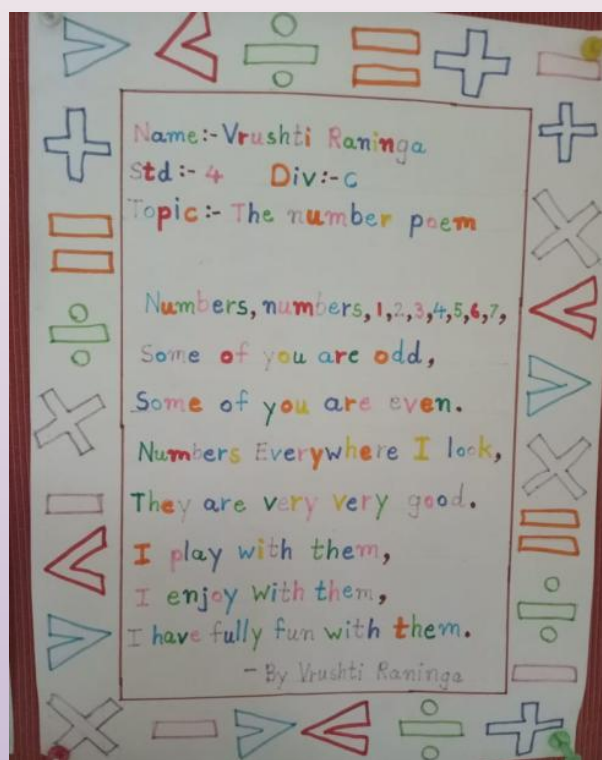 Name:- Vrushti Raninga
Std:- 4 Div:- C
Topic:- The number poem
Numbers, numbers, 1,2,3,4,5,6,7,
Some of you are odd,
Some of you are even.
Numbers Everywhere I look,
They are very very good.
I play with them,
I enjoy with them,
I have fully fun with them.
- By Vrushti Raninga